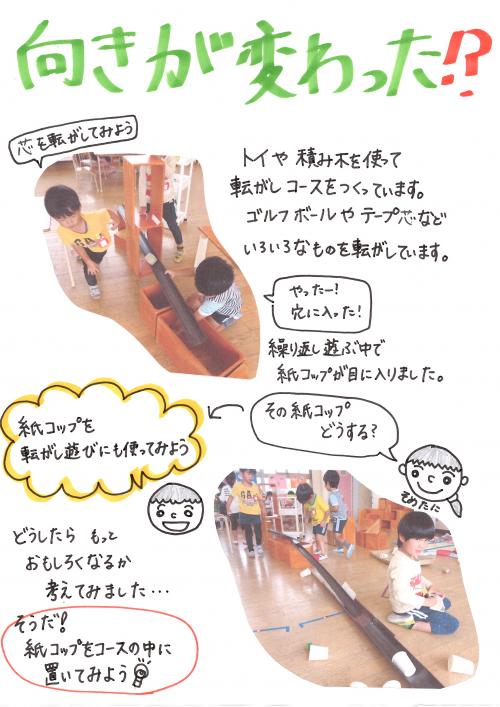 向きが変わった!?
芯を転がしてみよう
トイや 積み木を使って
転がしコースをつくっています。
ゴルフボールや テープ芯など
いろいろなものを転がしています。
やったー!
穴に入った!
繰り返し遊ぶ中で
紙コップが目に入りました。
その紙コップ
どうする?
そめたに
紙コップを
転がし遊びにも使ってみよう
どうしたら もっと
おもしろくなるか
考えてみました…
そうだ!
紙コップをコースの中に
置いてみよう